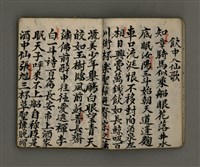 飲中八仙歌
知章騎馬似乘船眼花落井水
底眠汝陽三斗始朝天道逢麴
車口流涎恨不移封向酒泉左
相日興費萬錢飲如長鯨吸百
川銜杯樂聖稱
美少年舉觴白眼望青天
皎如玉樹臨風前蘇晉長齋
繡佛前醉中往往愛逃禪李
白一斗詩百篇長安市上酒家
眠天子呼來不上船自稱臣是
酒中仙張旭三杯草聖傳